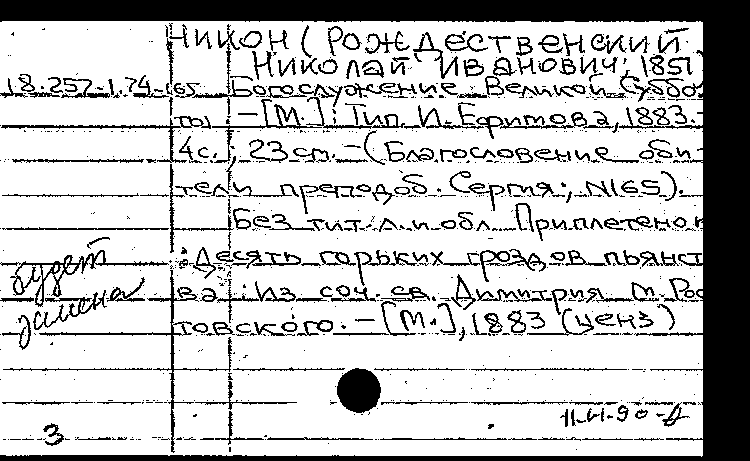 Никон (Рождественский
Николай Иванович; 1851
18.257-1.74-165 Богослужение Великой Суббо
ты — [М.]: Тип. И. Ефимова, 1883.-
4с.; 23 см. — (Благословение оби
тели преподоб. Сергия; N165).
Без тит. л. и обл. Приплетено к
: Десять горьких гроздов пьянст
ва : Из соч. св. Димитрия м. Рос
товского. — [М.], 1883 (ценз)
будет
замена
3